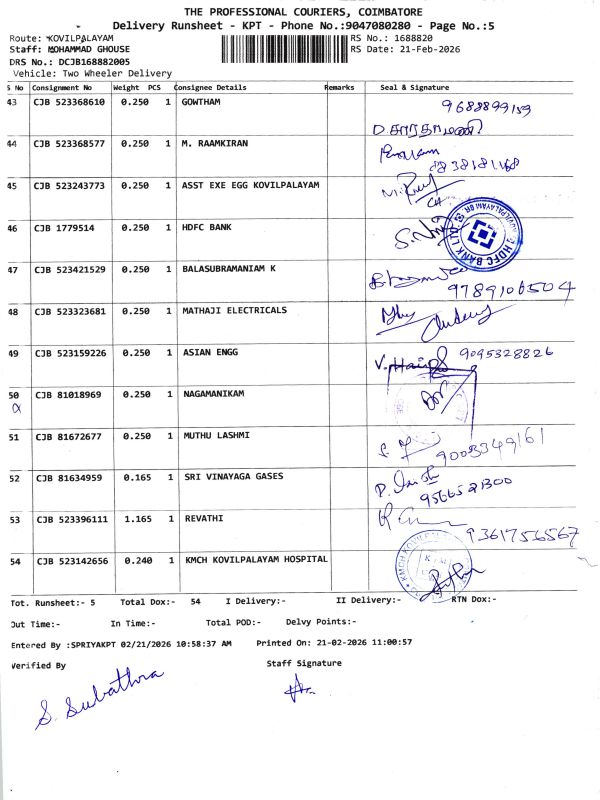 THE PROFESSIONAL COURIERS, COIMBATORE
Delivery Runsheet - KPT - Phone No.:9047080280 - Page No.:5
Route: KOVILPALAYAM RS No.: 1688820
Staff: MOHAMMAD GHOUSE RS Date: 21-Feb-2026
DRS No.: DCJB168882005
Vehicle: Two Wheeler Delivery
S No Consignment No Weight PCS Consignee Details Remarks Seal & Signature
43 CJB 523368610 0.250 1 GOWTHAM 9688899159
44 CJB 523368577 0.250 1 M. RAAMKIRAN
45 CJB 523243773 0.250 1 ASST EXE EGG KOVILPALAYAM
46 CJB 1779514 0.250 1 HDFC BANK HDFC BANK LTD
47 CJB 523421529 0.250 1 BALASUBRAMANIAM K 9789106504
48 CJB 523323681 0.250 1 MATHAJI ELECTRICALS
49 CJB 523159226 0.250 1 ASIAN ENGG 9095328826
50 CJB 81018969 0.250 1 NAGAMANIKAM
51 CJB 81672677 0.250 1 MUTHU LASHMI 9003349161
52 CJB 81634959 0.165 1 SRI VINAYAGA GASES 9566521300
53 CJB 523396111 1.165 1 REVATHI 9361756567
54 CJB 523142656 0.240 1 KMCH KOVILPALAYAM HOSPITAL
Tot. Runsheet:- 5 Total Dox:- 54 I Delivery:- II Delivery:- RTN Dox:-
Out Time:- In Time:- Total POD:- Delvy Points:-
Entered By :SPRIYAKPT 02/21/2026 10:58:37 AM Printed On: 21-02-2026 11:00:57
Verified By Staff Signature
S. Subathra